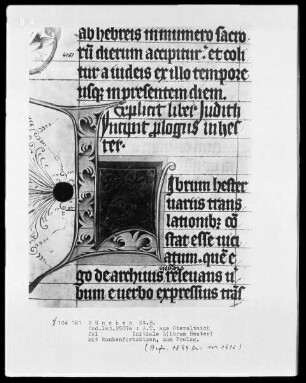 ab hebreis in numero sacro
rū dierum accipitur. et coli
tur a iudeis ex illo tempore
usq; in presentem diem.
Explicit liber Judith
Incipit plogus in hes
ter.
Librum hester
uariis trans
lationib; cō
stat esse uici
atum. quē e
go de archiuis releuans u
bum e uerbo expressius trās
München St.B.
fol Initiale L(ibrum Hester)
mit Rankenfortsätzen, zum Prolog.